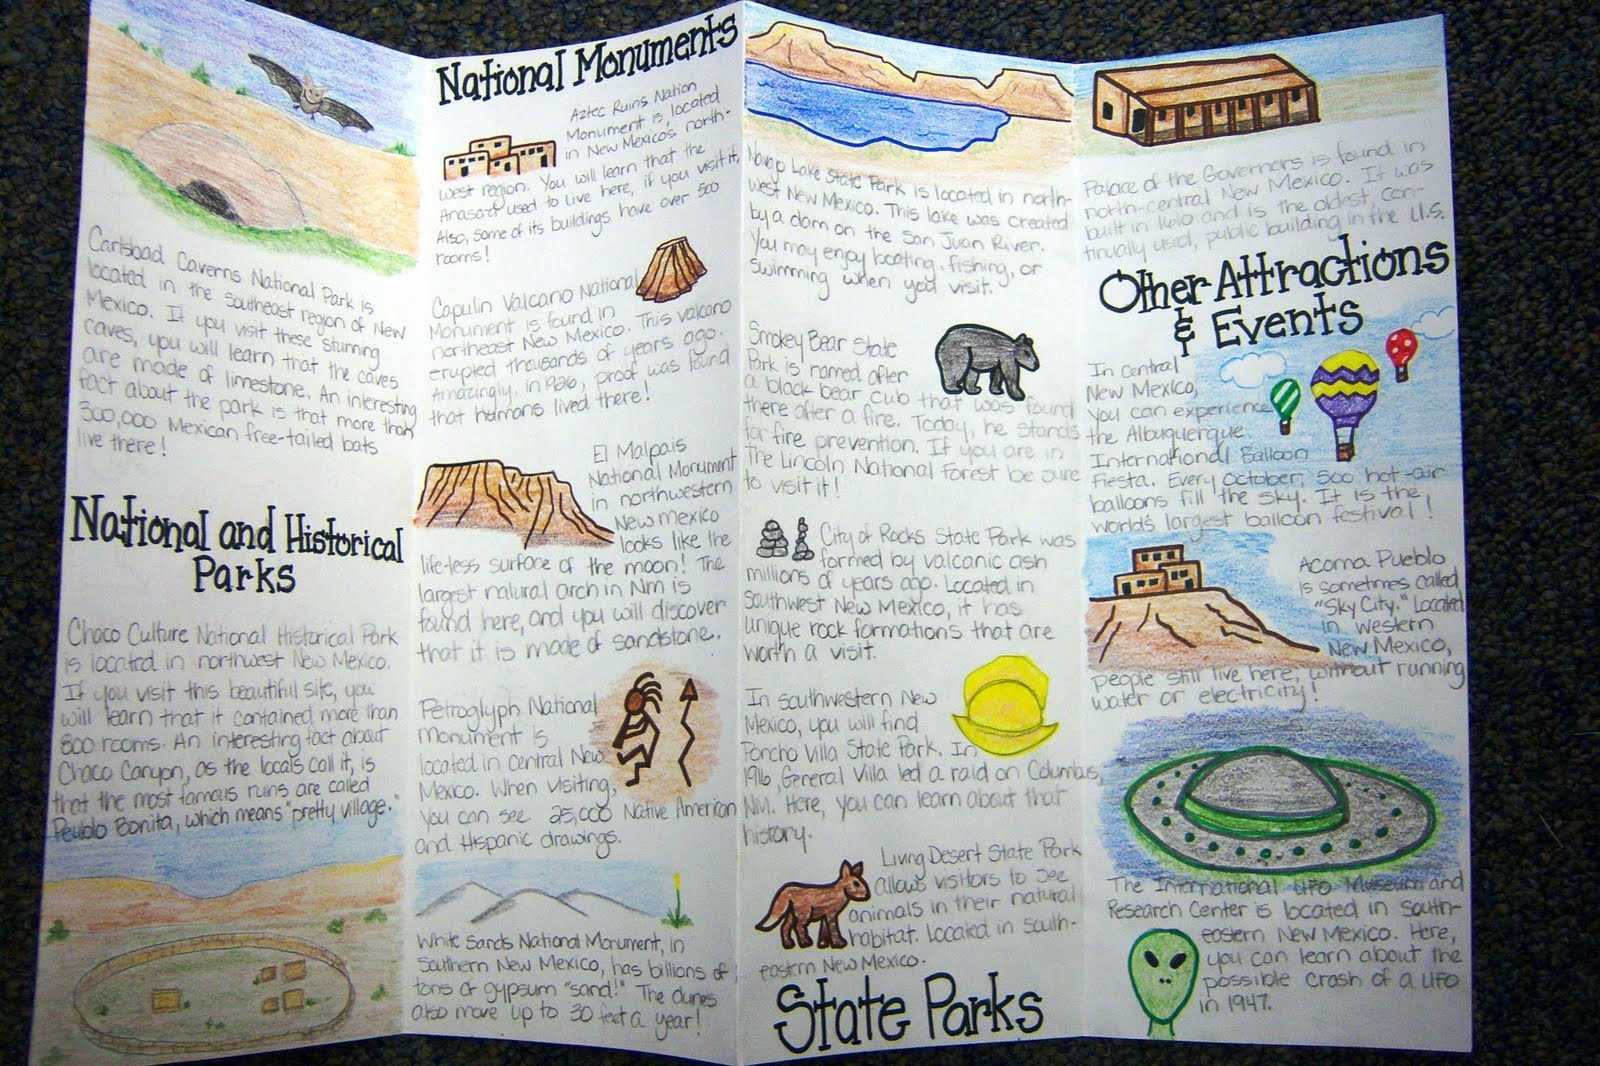 Carlsbad Caverns National Park is
located in the southeast region of New
Mexico. If you visit these stunning
caves, you will learn that the caves
are made of limestone. An interesting
fact about the park is that more than
300,000 Mexican free-tailed bats
live there!
National and Historical
Parks
Chaco Culture National Historical Park
is located in northwest New Mexico.
If you visit this beautiful site, you
will learn that it contained more than
800 rooms. An interesting fact about
Chaco Canyon, as the locals call it, is
that the most famous ruins are called
Peublo Bonita, which means "pretty village."
National Monuments
Aztec Ruins Nation
Monument is located
in New Mexico's north-
west region. You will learn that the
Anasazi used to live here, if you visit it.
Also, some of its buildings have over 500
rooms!
Capulin Valcano National
Monument is found in
northeast New Mexico. This valcano
erupted thousands of years ago.
Amazingly, in 1926, proof was found
that humans lived there!
El Malpais
National Monument
in northwestern
New Mexico
looks like the
life-less surface of the moon! The
largest natural arch in NM is
found here, and you will discover
that it is made of sandstone.
Petroglyph National
Monument is
located in central New
Mexico. When visiting,
you can see 25,000 Native American
and Hispanic drawings.
White Sands National Monument, in
Southern New Mexico, has billions of
tons of gypsum "sand!" The dunes
also move up to 30 feet a year!
Navajo Lake State Park is located in north-
west New Mexico. This lake was created
by a dam on the San Juan River.
You may enjoy boating, fishing, or
swimming when you visit.
Smokey Bear State
Park is named after
a black bear cub that was found
there after a fire. Today, he stands
for fire prevention. If you are in
The Lincoln National Forest be sure
to visit it!
City of Rocks State Park was
formed by volcanic ash
millions of years ago. Located in
Southwest New Mexico, it has
unique rock formations that are
worth a visit.
In southwestern New
Mexico, you will find
Poncho Villa State Park. In
1916, General Villa led a raid on Columbus,
NM. Here, you can learn about that
history.
Living Desert State Park
allows visitors to see
animals in their natural
habitat. Located in south-
eastern New Mexico.
State Parks
Palace of the Governors is found in
north-central New Mexico. It was
built in 1610 and is the oldest, con-
tinually used, public building in the U.S.
Other Attractions
& Events
In central
New Mexico,
you can experience
the Albuquerque
International Balloon
Fiesta. Every October, 500 hot-air
balloons fill the sky. It is the
world's largest balloon festival!
Acoma Pueblo
is sometimes called
"Sky City." Located
in western
New Mexico,
people still live here, without running
water or electricity!
The International UFO Museum and
Research Center is located in South-
eastern New Mexico. Here,
you can learn about the
possible crash of a UFO
in 1947.